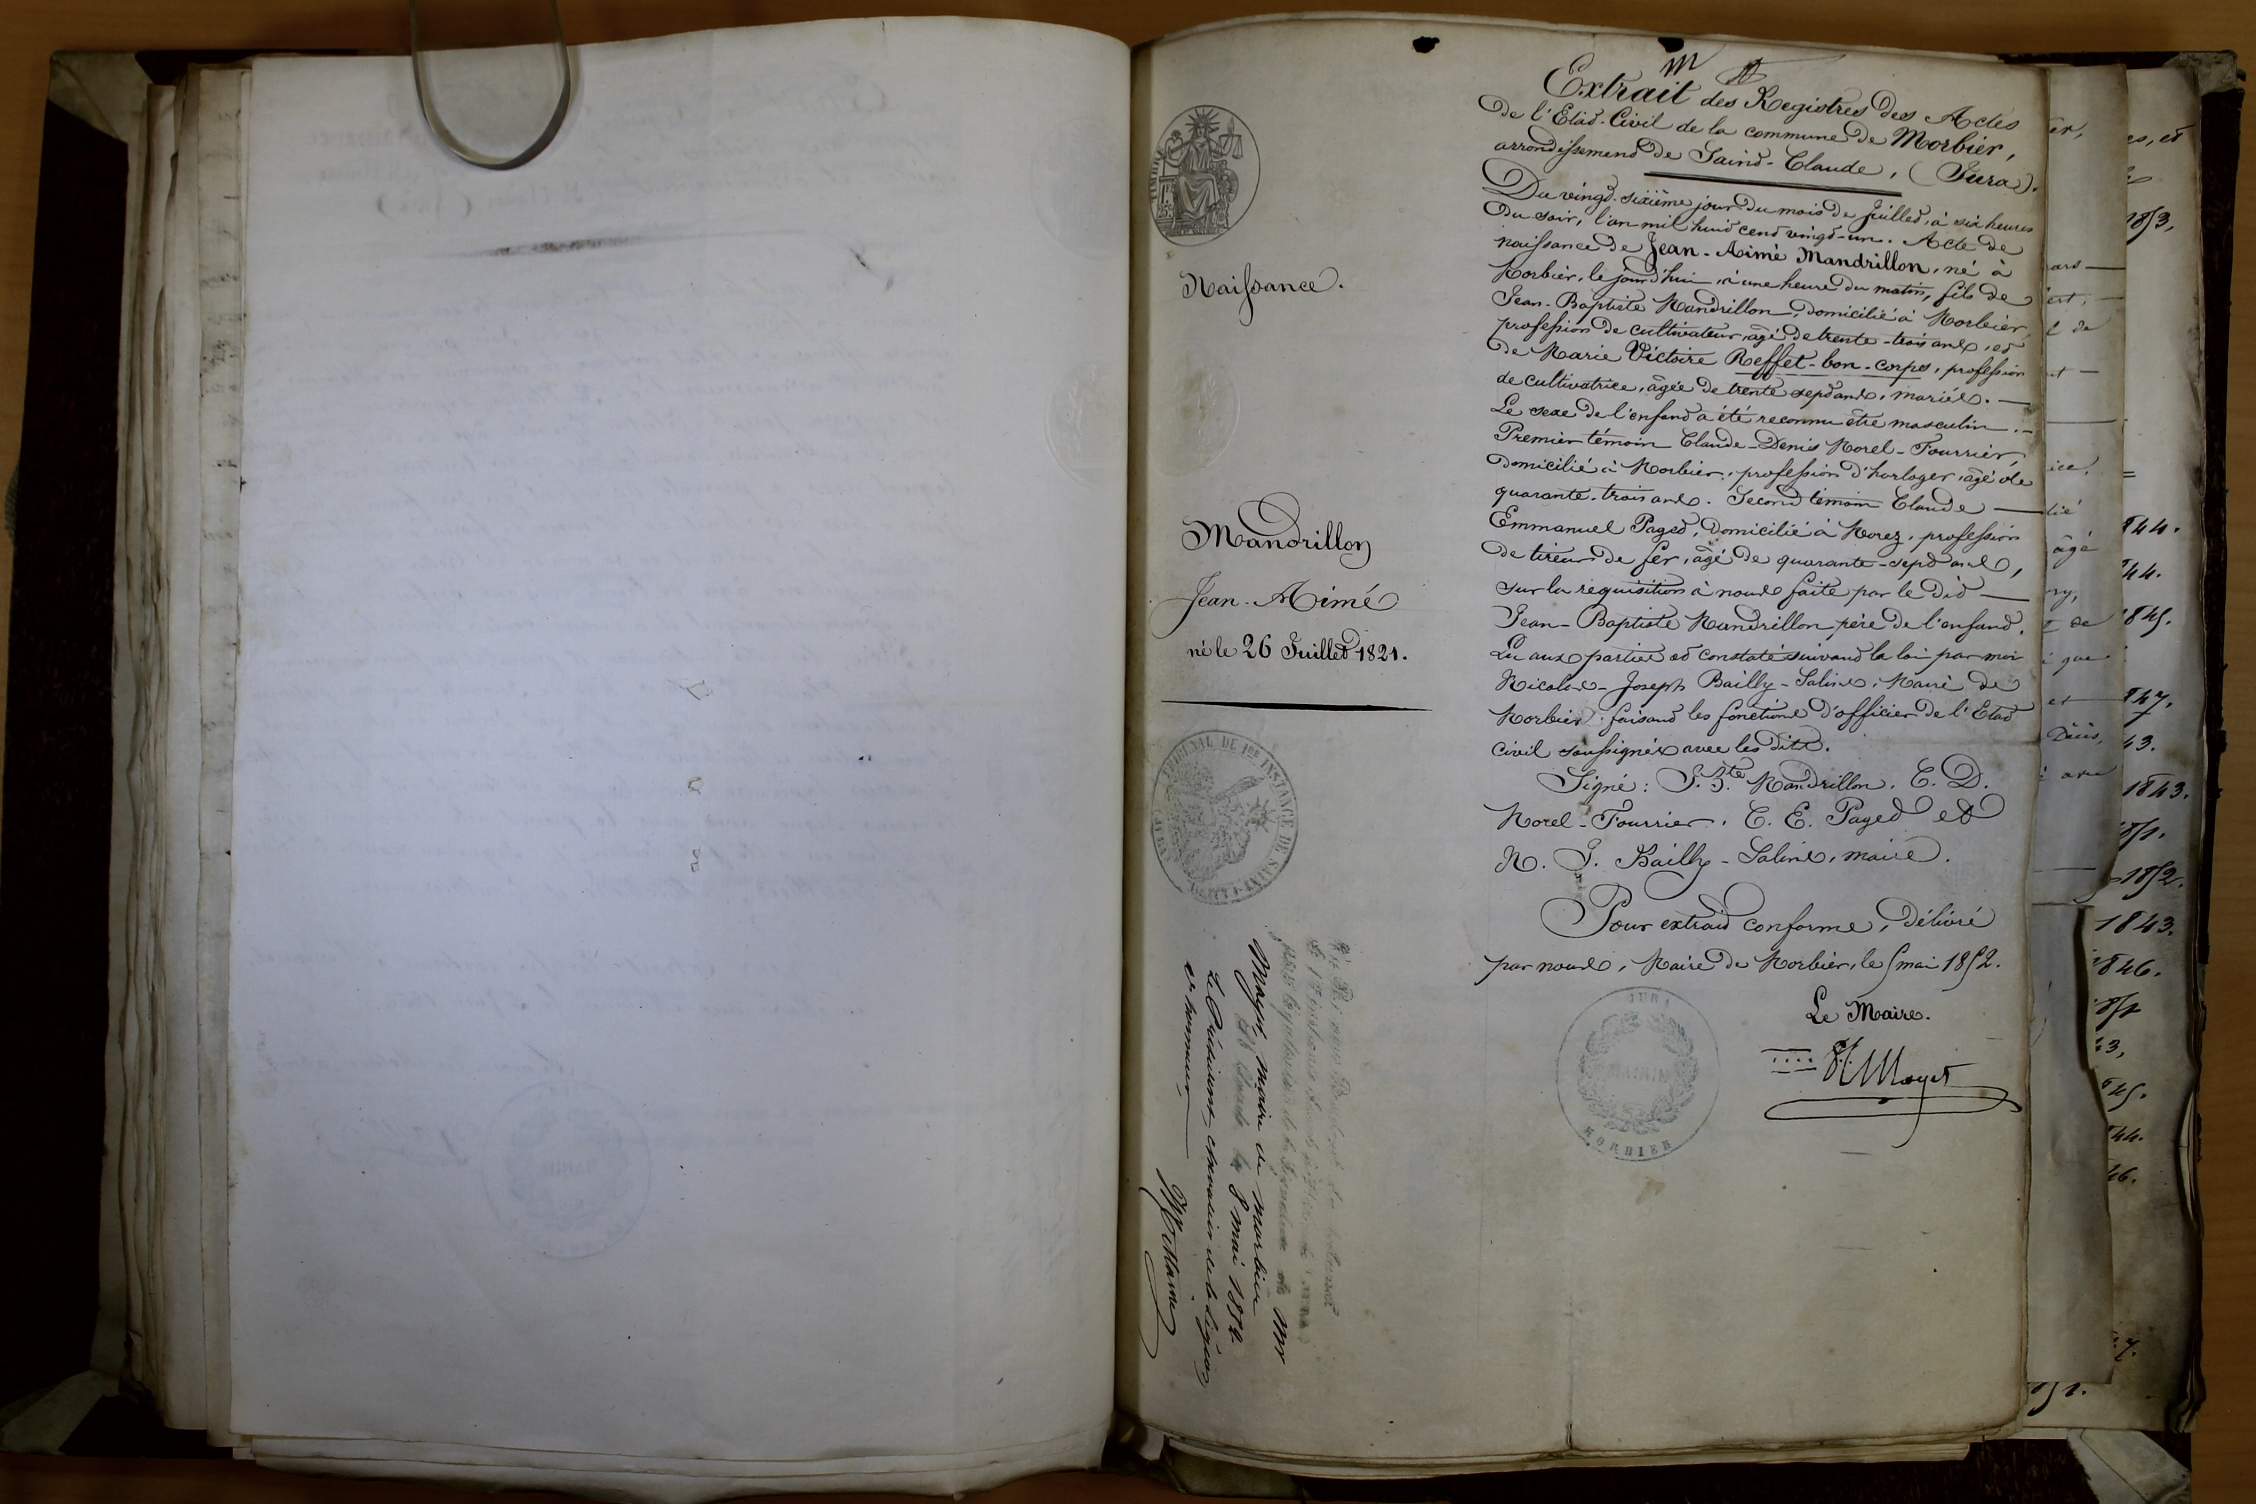 Extrait des Registres des Actes
de l'Etat-Civil de la commune de Morbier,
arrondissement de Saint-Claude, (Jura).
Du vingt-sixième jour du mois de Juillet, à six heures
du soir, l'an mil huit cent vingt-un. Acte de
naissance de Jean-Aimé Mandrillon, né à
Morbier, le jourd'hui, à une heure du matin, fils de
Jean-Baptiste Mandrillon, domicilié à Morbier,
profession de cultivateur, âgé de trente-trois ans, et
de Marie Victoire Reffet-bon-corps, profession
de cultivatrice, âgée de trente sept ans, mariés. —
Le sexe de l'enfant a été reconnu être masculin. —
Premier témoin Claude-Denis Morel-Fourrier,
domicilié à Morbier, profession d'horloger, âgé de
quarante-trois ans. Second témoin Claude —
Emmanuel Paget, domicilié à Morez, profession
de tireur de fer, âgé de quarante-sept ans,
sur la réquisition à nous faite par le dit —
Jean-Baptiste Mandrillon père de l'enfant.
Lu aux parties et constaté suivant la loi par moi
Nicolas-Joseph Bailly-Salins, Maire de
Morbier, faisant les fonctions d'officier de l'Etat
civil soussigné avec les dits.
Signé: J. Bte Mandrillon. C. D.
Morel-Fourrier. C. E. Paget et
N. J. Bailly-Salins, maire.
Pour extrait conforme, délivré
par nous, Maire de Morbier, le 5 mai 1852.
Le Maire.
Mayet
JURA
MAIRIE
MORBIER
Naissance.
Mandrillon
Jean-Aimé
né le 26 Juillet 1821.
TRIBUNAL DE 1ERE INSTANCE DE SAINT-CLAUDE
(JURA)
légalisation de la signature de Mr
Mayet, maire de morbier
St Claude le 8 mai 1852
Le Président, chevalier de la légion
d'honneur,
1853,
1844.
1845.
1847.
1843.
1852.
1843.
1846.